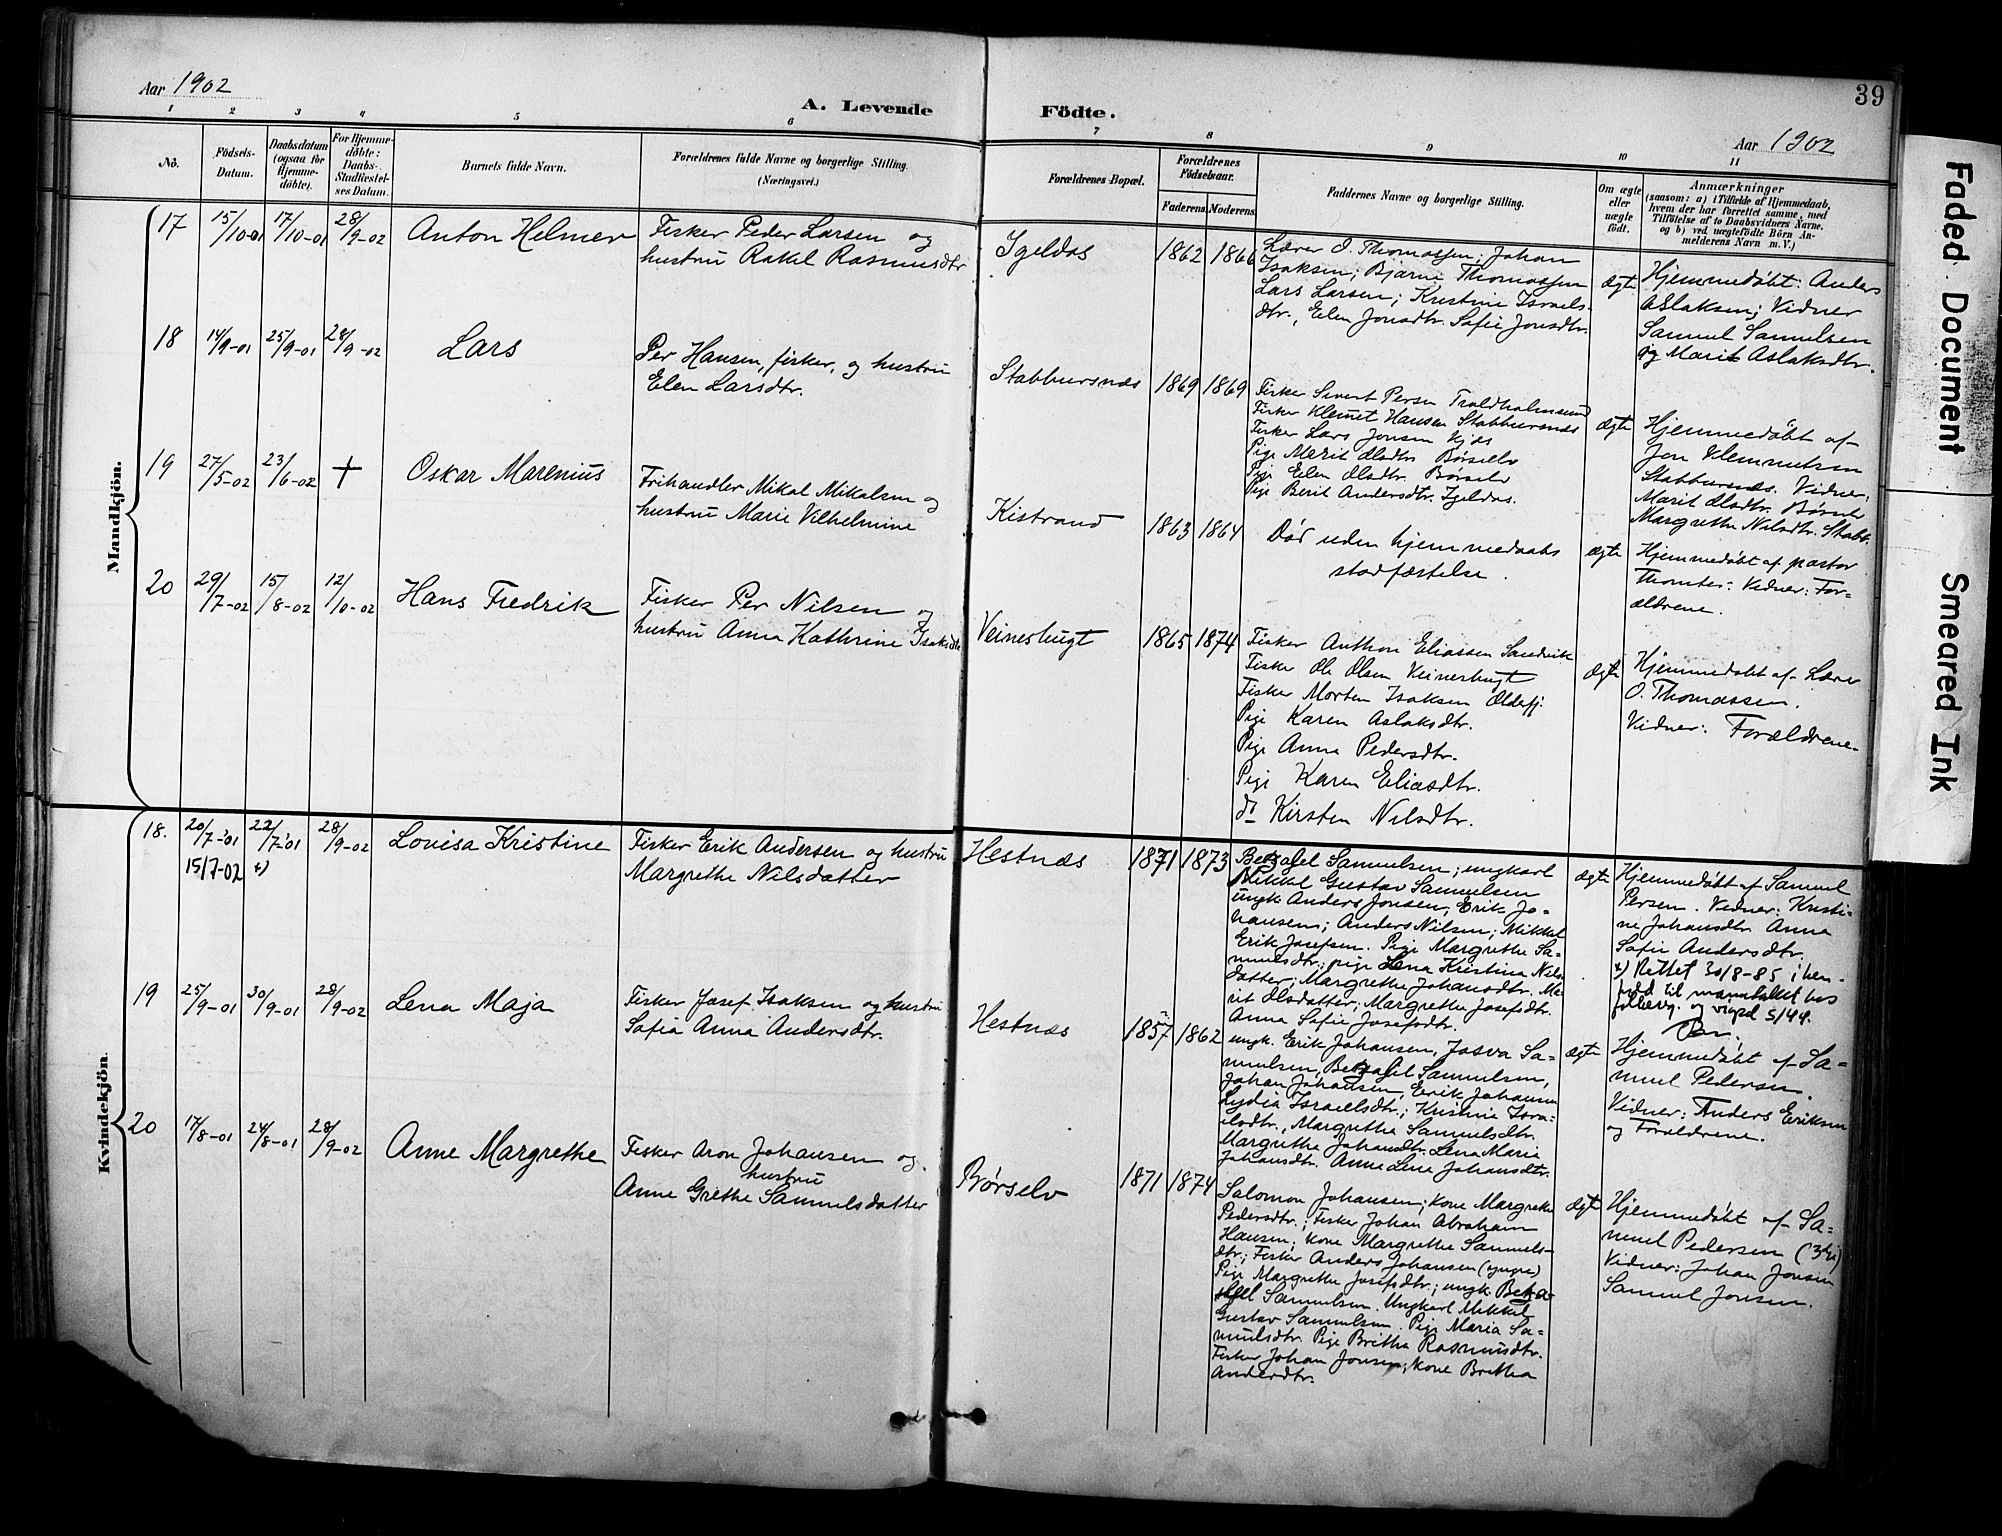 Aar 1902
A. Levende Födte.
39
Aar 1902
1 2 3 4 5 6 7 8 9 10 11
No.
Födsels-
Datum.
Daabsdatum
(ogsaa for
Hjemme-
döbte).
For Hjemme-
döbte:
Daabs-
Stadfæstel-
ses Datum.
Barnets fulde Navn.
Forældrenes fulde Navne og borgerlige Stilling.
(Næringsvei.)
Forældrenes Bopæl.
Forældrenes
Födselsaar.
Faderens. Moderens.
Faddernes Navne og borgerlige Stilling.
Om ægte
eller
uægte
födt.
Anmærkninger
(saasom: a) i Tilfælde af Hjemmedaab,
hvem der har forrettet samme, med
Tilföielse af to Daabsvidners Navne.
og b) ved uægtefödte Börn An-
melderens Navn m. V.)
Mandkjön.
17
15/10-01
17/10-01
28/9-02
Anton Helmer
Fisker Peder Larsen og
hustru Rakel Rasmusdtr
Igeldas
1862
1866
Lærer O. Thomassen; Johan
Isaksen; Bjarne Thomassen
Lars Larsen; Kristine Israels-
dtr., Elen Jonsdtr. Sofie Jonsdtr.
ægte
Hjemmedøbt: Anders
Aslaksen; Vidner
Samuel Samuelsen
og Marit Aslaksdtr.
18
14/9-01
25/9-01
28/9-02
Lars
Per Hansen, fisker, og hustru
Elen Larsdtr.
Stabbursnæs
1869
1869
Fisker Sivert Persen Troldholmsund
Fisker Klemet Hansen Stabbursnæs
Fisker Lars Jonsen
Pige Marit Olsdtr Børselv
Pige Elen Olsdtr. Børselv
Pige Berit Andersdtr. Igeldas.
ægte
Hjemmedøbt af
Jon Klemmetsen
Stabbursnæs. Vidner:
Marit Olsdtr. Børselv
Margrethe Nilsdtr. Stabb.
19
27/5-02
23/6-02
+
Oskar Marenius
Frihandler Mikal Mikalsen og
hustru Marie Vilhelmine
Kistrand
1863
1864
Død uden hjemmedaabs
stadfæstelse.
ægte
Hjemmedøbt af pastor
Vidner: For=
ældrene.
20
29/7-02
15/8-02
12/10-02
Hans Fredrik
Fisker Per Nilsen og
hustru Anna Kathrine Isaksdtr
Veinesbugt
1865
1874
Fisker Anthon Eliassen Sandvik
Fisker Ole Olsen Veinesbugt
Fisker Morten Isaksen Olderfj.
Pige Karen Aslaksdtr.
Pige Anna Pedersdtr.
Pige Karen Eliasdtr.
do Kirsten Nilsdtr.
ægte
Hjemmedøbt af Lærer
O. Thomassen.
Vidner: Forældrene.
Kvindekjön.
18.
20/7-'01
15/7-02
22/7-'01
x)
28/9-02
Lovisa Kristine
Fisker Erik Andersen og hustru
Margrethe Nilsdatter
Hestnæs
1871
1873
Bezalel Samuelsen; ungkarl
Mikkel Gustav Samuelsen
ungk Anders Jonsen, Erik Jo=
hansen; Anders Nilsen; Mikkel
Erik Josefsen. Pige Margrethe Sa=
muelsdtr; pige Lena Kristina Nils
datter; Margrethe Johansdtr. Ma=
rit Olsdatter, Margrethe Josefsdtr.
Anna Sofie Josefsdtr.
ægte
Hjemmedøbt af Samuel
Persen. Vidner: Kristi=
ne Johansdtr Anna
Sofie Andersdtr.
x) Rettet 30/8-85 i hen-
hold til manntallet hos
folkereg. og vigsel 5/44.
19
25/9-01
30/9-01
28/9-02
Lena Maja
Fisker Josef Isaksen og hustru
Sofia Anna Andersdtr.
Hestnæs
1857
1862
ungk. Erik Johansen, Josva Sa=
muelsen, Bezalel Samuelsen,
Johan Johansen, Erik Johansen
Lydia Israelsdtr.; Kristine Isra=
elsdtr., Margrethe Samuelsdtr.
Margrethe Johansdtr. Lena Maria
Johansdtr. Anne Lena Johansdtr.
ægte
Hjemmedøbt af Sa=
muel Pedersen.
Vidner: Anders Eriksen
og Forældrene.
20
17/8-01
24/8-01
28/9-02
Anne Margrethe
Fisker Aron Johansen og
hustru
Anne Grethe Samuelsdatter
Børselv
1871
1874
Salomon Johansen; kone Margrethe
Pedersdtr.; Fisker Johan Abraham
Hansen; kone Margrethe Samuels-
dtr.; Fisker Anders Johansen (yngre)
Pige Margrethe Josefsdtr.; ungk. Beza-
lel Samuelsen. Ungkarl Mikkel
Gustav Samuelsen. Pige Maria Sa=
muelsdtr. Pige Britha Rasmusdtr.
Fisker Johan Jonsen, kone Britha
Andersdtr.
ægte
Hjemmedøbt af Sa=
muel Pedersen
Vidner: Johan Jonsen
Samuel Jonsen.
Faded Document
Smeared Ink